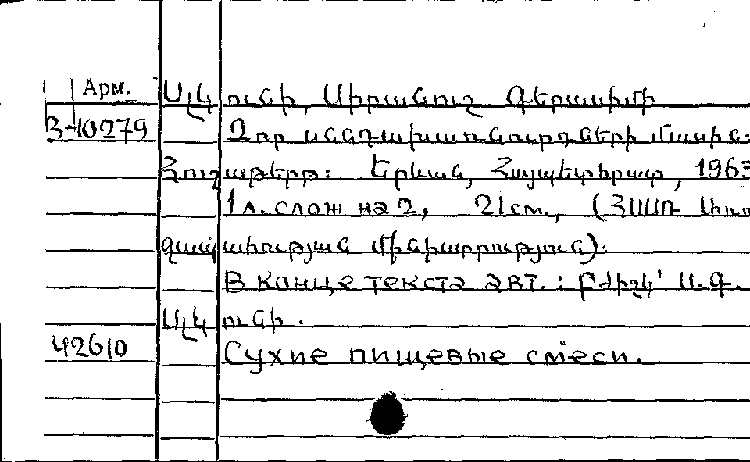 Арм.
Ալկունի, Սիրանուշ Գերասիմի
3-10279
Չոր սննդախառնուրդների մասին:
Հուշաթերթ: Երևան, Հայպետհրատ, 1963
1 л. слож на 2, 21 см., (ՀՍՍՌ Առող
ջապահության մինիստրություն):
В конце текста авт.: բժիշկ՝ Ս. Գ.
Ալկունի.
42610
Сухие пищевые смеси.